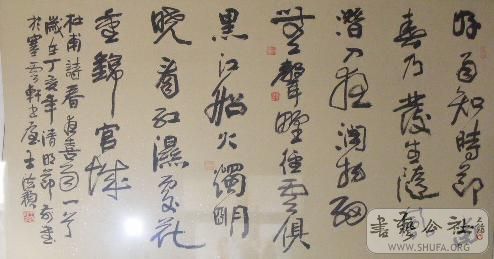 好雨知時節當
春乃發生隨風
潛入夜潤物細
無聲野徑雲俱
黑江船火獨明
曉看紅濕處花
重錦官城
杜甫詩春夜喜雨一首
歲在丁亥年清明節前書
書藝公社
WWW.SHUFA.ORG